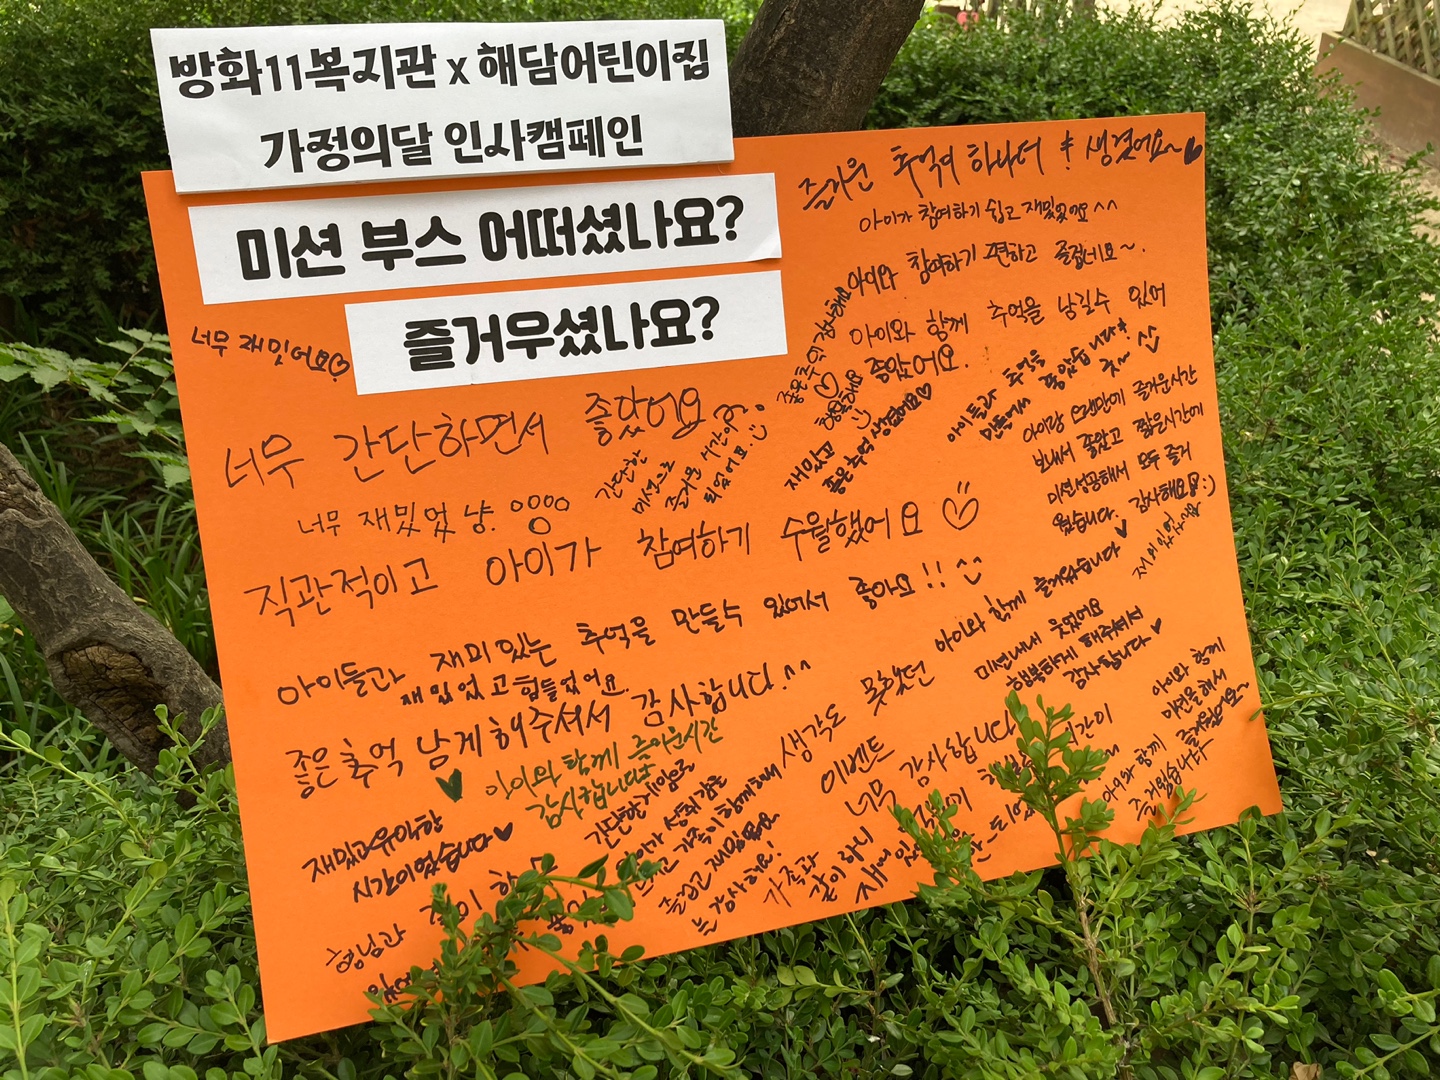 방화11복지관 x 해담어린이집
가정의달 인사캠페인
미션 부스 어떠셨나요?
즐거우셨나요?
즐거운 추억이 하나더 생겼어요~♥
아이가 참여하기 쉽고 재밌었어요^^
아이와 참여하기 편하고 즐겁네요~.
아이와 함께 추억을 남길수 있어
좋았어요.
좋은추억 감사해요
♡ 행복해요
재밌고
좋은 추억 생겼어요♡
아이들과 추억을
만들어서 좋았습니다!
아이랑 오랜만에 즐거운시간
보내서 좋았고 짧은시간에
미션성공해서 모두 즐거
웠습니다. 감사해요:)
너무 재밌어요♡
너무 간단하면서 좋았어요
간단한
미션으로
즐거운 시간이
되었어요.
너무 재밌었냥.
직관적이고 아이가 참여하기 수월했어요
아이들과 재미있는 추억을 만들수 있어서 좋아요!!
재밌었고 힘들었어요.
좋은추억 남게해주셔서 감사합니다.^^
아이와 함께 즐거운시간
감사합니다
생각도 못했던 아이와 함께 즐거웠습니다♥
이벤트
너무 감사합니다
미션내내 웃었어요
행복하게 해주셔서
감사합니다♥
아이와 함께
미션을해서
즐거웠어요~
아이와 함께
즐거웠습니다
재밌고유익한
시간이었습니다♥
간단한게임으로
아이가 성취감을
가족이 함께해
즐겁고 재밌었어요
감사해요!
가족과
같이하니
형님과 같이